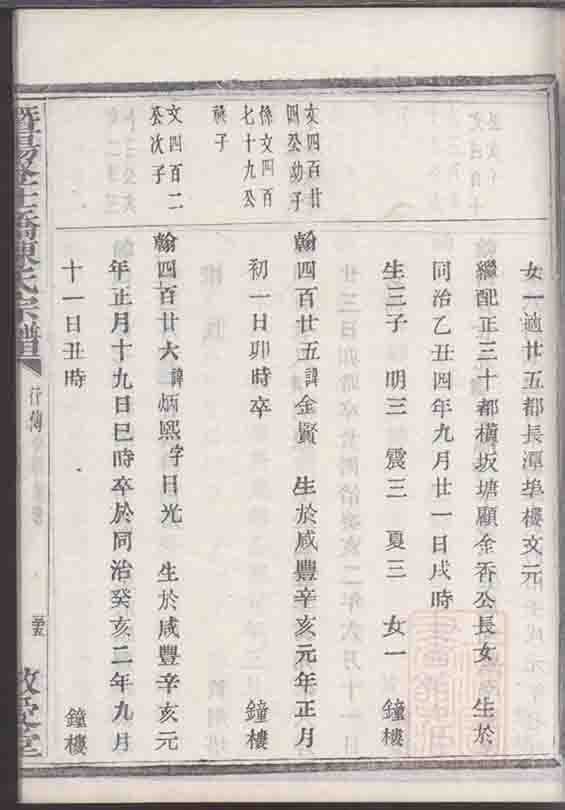 女一適廿五都長潭埠樓文元
繼配正三十都橫坂塘顧金香公長女　生於
同治乙丑四年九月廿一日戌時
生三子　明三　震三　夏三　女一　鐘樓
文四百廿
四公幼子
係文四百
七十九公
翰四百廿五諱金賢　生於咸豐辛亥元年正月
初一日卯時卒　鐘樓
文四百二
公次子
翰四百廿六諱炳熙字日光　生於咸豐辛亥元
年正月十九日巳時卒於同治癸亥二年九月
十一日丑時　鐘樓
陳氏宗譜
行傳